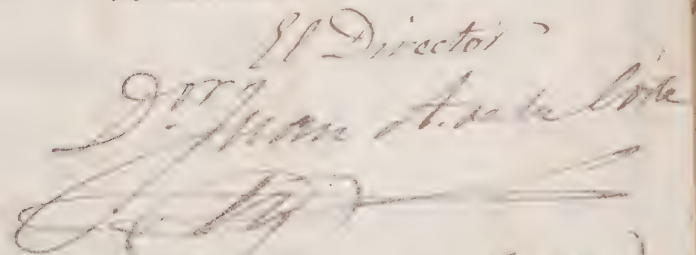 El Director
Dr Juan A. de la